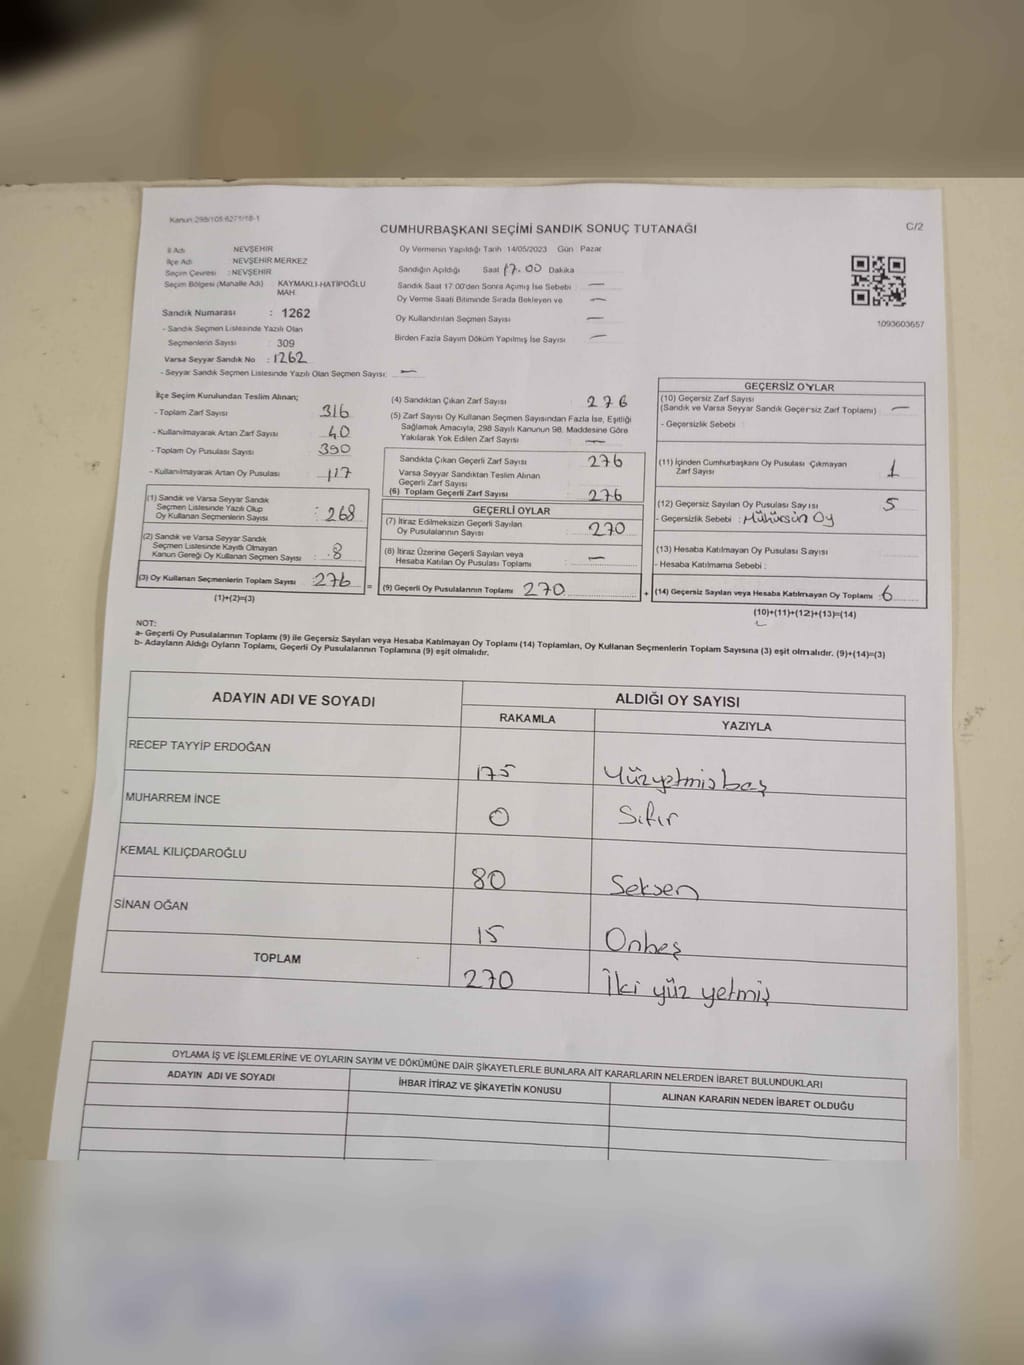 Kanun:298/105 6271/18-1
C/2
CUMHURBAŞKANI SEÇİMİ SANDIK SONUÇ TUTANAĞI
İl Adı NEVŞEHİR
İlçe Adı NEVŞEHİR MERKEZ
Seçim Çevresi : NEVŞEHİR
Seçim Bölgesi (Mahalle Adı) KAYMAKLI-HATİPOĞLU MAH.
Sandık Numarası : 1262
- Sandık Seçmen Listesinde Yazılı Olan
Seçmenlerin Sayısı : 309
Varsa Seyyar Sandık No : 1262
- Seyyar Sandık Seçmen Listesinde Yazılı Olan Seçmen Sayısı: —
Oy Vermenin Yapıldığı Tarih 14/05/2023 Gün Pazar
Sandığın Açıldığı Saat 17.00 Dakika
Sandık Saat 17:00'den Sonra Açımış İse Sebebi —
Oy Verme Saati Bitiminde Sırada Bekleyen ve —
Oy Kullandırılan Seçmen Sayısı —
Birden Fazla Sayım Döküm Yapılmış İse Sayısı —
1093603657
İlçe Seçim Kurulundan Teslim Alınan;
- Toplam Zarf Sayısı 316
- Kullanılmayarak Artan Zarf Sayısı 40
- Toplam Oy Pusulası Sayısı 390
- Kullanılmayarak Artan Oy Pusulası 117
(1) Sandık ve Varsa Seyyar Sandık
Seçmen Listesinde Yazılı Olup
Oy Kullanan Seçmenlerin Sayısı : 268
(2) Sandık ve Varsa Seyyar Sandık
Seçmen Listesinde Kayıtlı Olmayan
Kanun Gereği Oy Kullanan Seçmen Sayısı : 8
(3) Oy Kullanan Seçmenlerin Toplam Sayısı : 276 =
(1)+(2)=(3)
(4) Sandıktan Çıkan Zarf Sayısı : 276
(5) Zarf Sayısı Oy Kullanan Seçmen Sayısından Fazla İse, Eşitliği
Sağlamak Amacıyla, 298 Sayılı Kanunun 98. Maddesine Göre
Yakılarak Yok Edilen Zarf Sayısı : —
Sandıkta Çıkan Geçerli Zarf Sayısı : 276
Varsa Seyyar Sandıktan Teslim Alınan
Geçerli Zarf Sayısı
(6) Toplam Geçerli Zarf Sayısı : 276
GEÇERLİ OYLAR
(7) İtiraz Edilmeksizin Geçerli Sayılan
Oy Pusulalarının Sayısı : 270
(8) İtiraz Üzerine Geçerli Sayılan veya
Hesaba Katılan Oy Pusulası Toplamı : —
(9) Geçerli Oy Pusulalarının Toplamı : 270 +
GEÇERSİZ OYLAR
(10) Geçersiz Zarf Sayısı
(Sandık ve Varsa Seyyar Sandık Geçersiz Zarf Toplamı) : —
- Geçersizlik Sebebi :
(11) İçinden Cumhurbaşkanı Oy Pusulası Çıkmayan
Zarf Sayısı : 1
(12) Geçersiz Sayılan Oy Pusulası Sayısı : 5
- Geçersizlik Sebebi : Mühürsün Oy
(13) Hesaba Katılmayan Oy Pusulası Sayısı :
- Hesaba Katılmama Sebebi :
(14) Geçersiz Sayılan veya Hesaba Katılmayan Oy Toplamı : 6
(10)+(11)+(12)+(13)=(14)
NOT:
a- Geçerli Oy Pusulalarının Toplamı (9) ile Geçersiz Sayılan veya Hesaba Katılmayan Oy Toplamı (14) Toplamları, Oy Kullanan Seçmenlerin Toplam Sayısına (3) eşit olmalıdır. (9)+(14)=(3)
b- Adayların Aldığı Oyların Toplamı, Geçerli Oy Pusulalarının Toplamına (9) eşit olmalıdır.
ADAYIN ADI VE SOYADI ALDIĞI OY SAYISI
RAKAMLA YAZIYLA
RECEP TAYYİP ERDOĞAN 175 Yüzyetmişbeş
MUHARREM İNCE 0 Sıfır
KEMAL KILIÇDAROĞLU 80 Seksen
SİNAN OĞAN 15 Onbeş
TOPLAM 270 İki yüz yetmiş
OYLAMA İŞ VE İŞLEMLERİNE VE OYLARIN SAYIM VE DÖKÜMÜNE DAİR ŞİKAYETLERLE BUNLARA AİT KARARLARIN NELERDEN İBARET BULUNDUKLARI
ADAYIN ADI VE SOYADI İHBAR İTİRAZ VE ŞİKAYETİN KONUSU ALINAN KARARIN NEDEN İBARET OLDUĞU